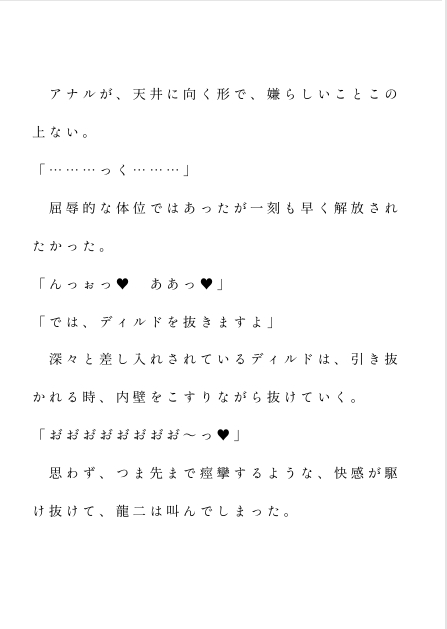 アナルが、天井に向く形で、嫌らしいことこの
上ない。
「………っく………」
　屈辱的な体位ではあったが一刻も早く解放され
たかった。
「んっぉっ♥　ああっ♥」
「では、ディルドを抜きますよ」
　深々と差し入れされているディルドは、引き抜
かれる時、内壁をこすりながら抜けていく。
「お゛お゛お゛お゛お゛お゛お゛お゛～っ♥」
　思わず、つま先まで痙攣するような、快感が駆
け抜けて、龍二は叫んでしまった。